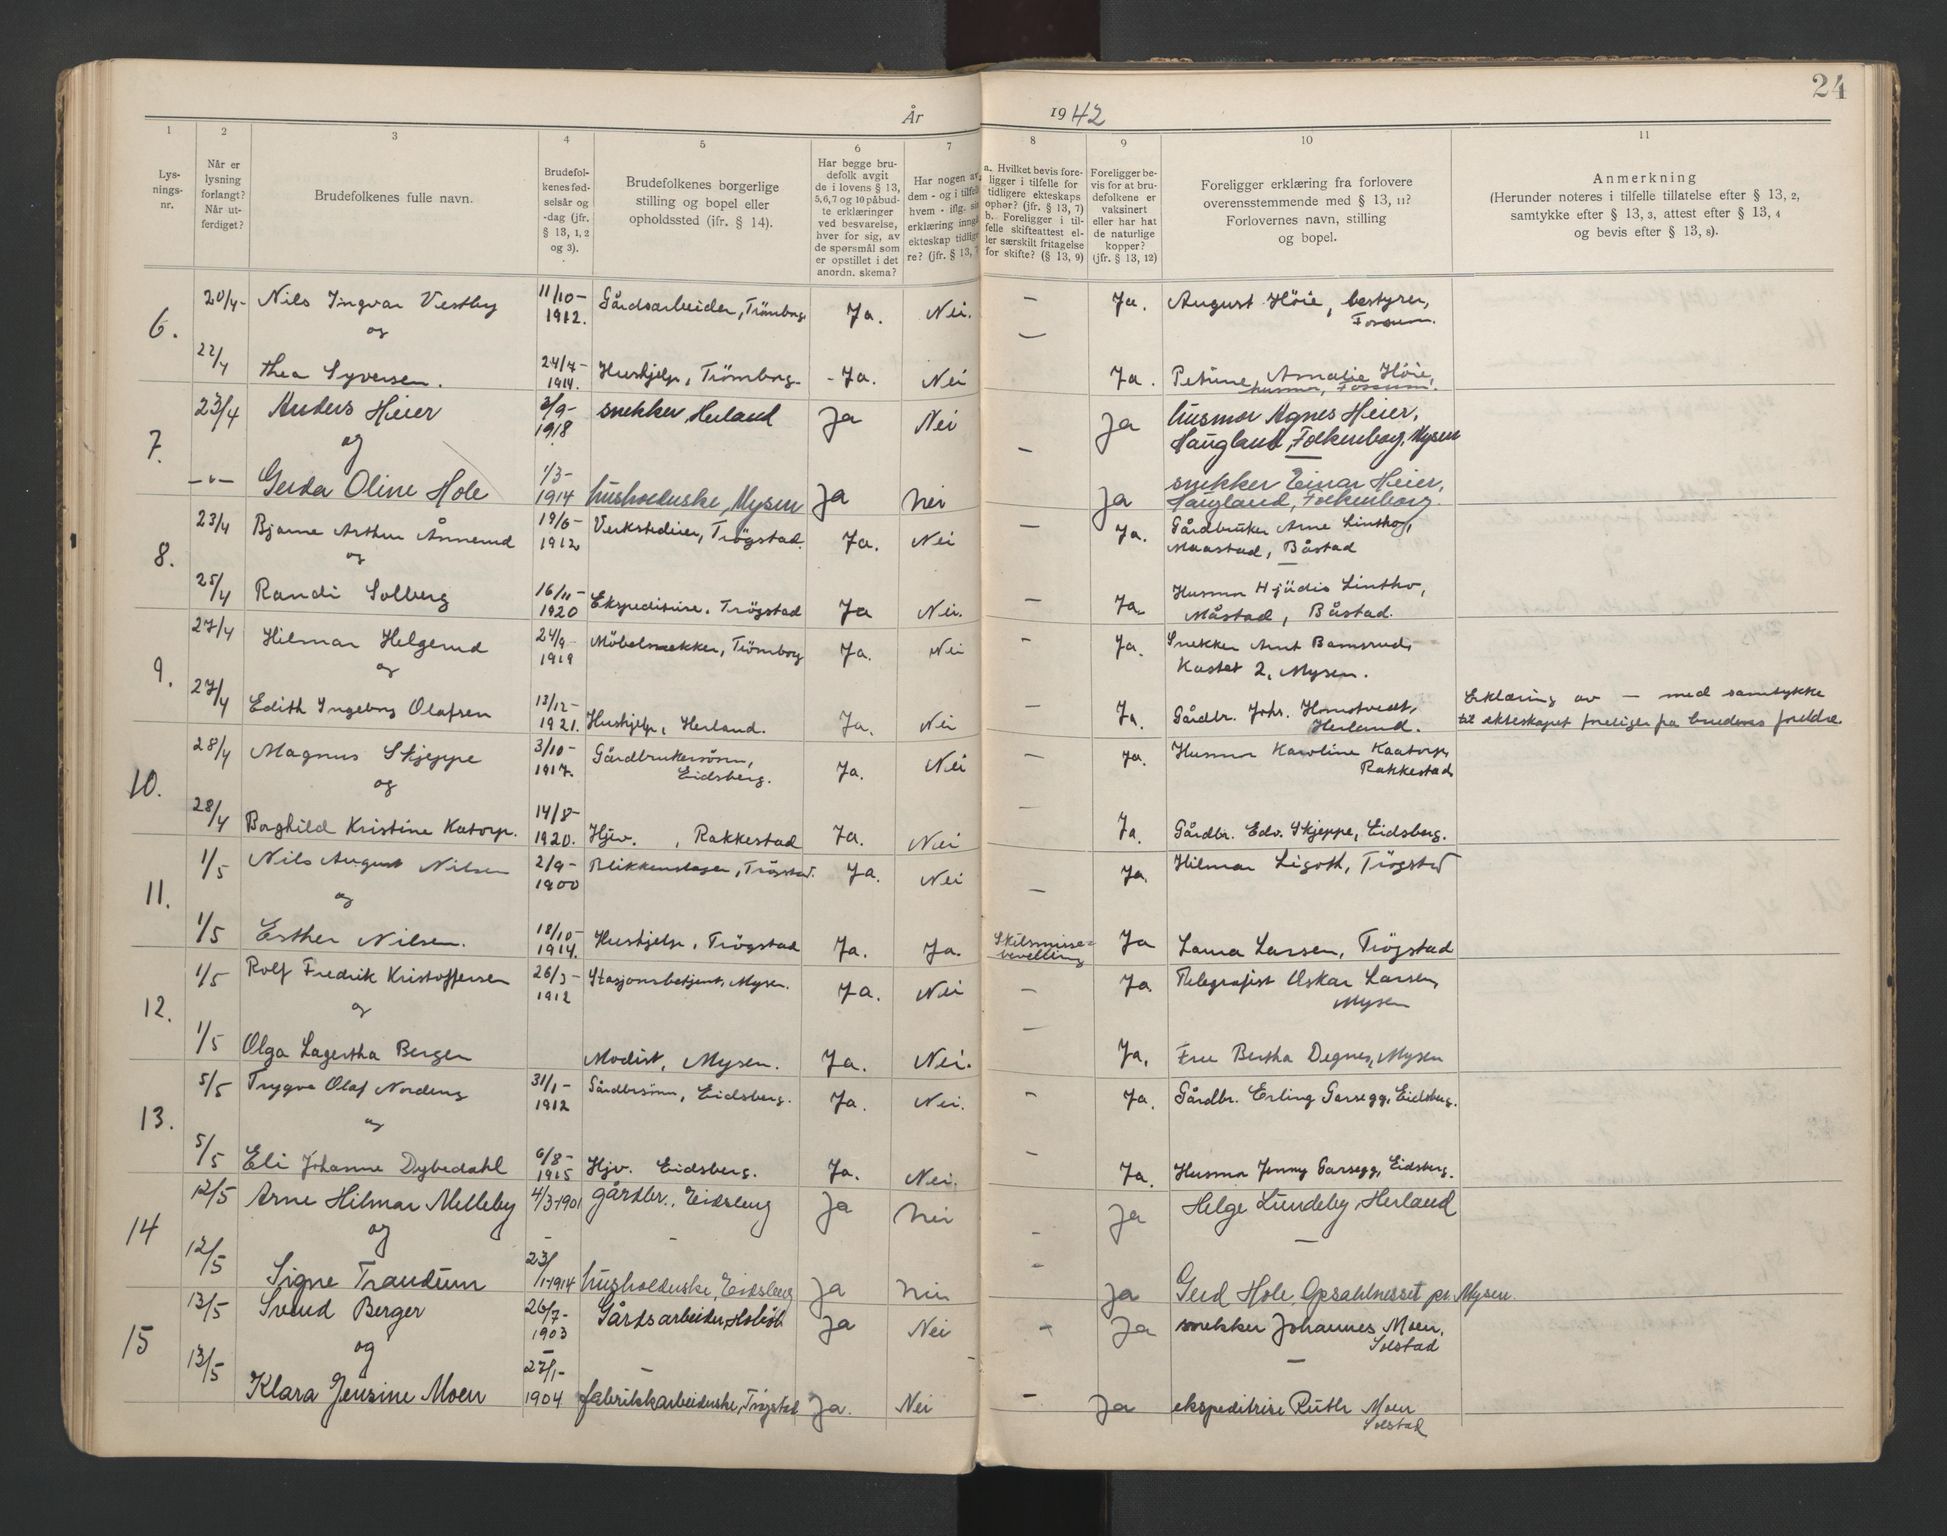 24
År 1942
1 2 3 4 5 6 7 8 9 10 11
Lys-
nings-
nr.
Når er
lysning
forlangt?
Når ut-
ferdiget?
Brudefolkenes fulle navn.
Brudefol-
kenes fød-
selsår og
-dag (jfr.
§ 13, 1, 2
og 3).
Brudefolkenes borgerlige
stilling og bopel eller
opholdssted (jfr. § 14).
Har begge bru-
defolk avgit
de i lovens § 13,
5,6,7 og 10 påbud-
te erklæringer
ved besvarelse,
hver for sig, av
de spørsmål som
er opstillet i det
anordn. skema?
Har nogen av
dem - og i tilfelle
hvem - iflg. sin
erklæring inngå
ekteskap tidlige-
re? (jfr. § 13, 7
a. Hvilket bevis fore-
ligger i tilfelle for
tidligere ekteskaps
ophør? (jfr. § 13, 7)
b. Foreligger i til-
felle skifteattest el-
ler særskilt fritagelse
for skifte? (§ 13, 9)
Foreligger be-
vis for at bru-
defolkene er
vaksinert
eller har hat
de naturlige
kopper?
(jfr. § 13, 12)
Foreligger erklæring fra forlovere
overensstemmende med § 13, 11?
Forlovernes navn, stilling
og bopel.
Anmerkning
(Herunder noteres i tilfelle tillatelse efter § 13, 2,
samtykke efter § 13, 3, attest efter § 13, 4
og bevis efter § 13, 8).
6. 20/4- Nils Ingvar Vestby 11/10- 1912. Gårdsarbeider, Trømborg. Ja. Nei. — Ja. August Höie, bestyrer,
Fossum.
og —
22/4 Thea Syversen. 24/7- 1914. Hushjelp, Trömborg - Ja. Nei Ja. Petrine Amalie Höie,
husmor, Fossum.
7. 23/4 Anders Heier 3/9- 1918 snekker Herland Ja Nei Ja husmor Agnes Heier,
Haugland, Folkenborg, Mysen
og —
-"- Gerda Oline Hole 1/3- 1914 husholderske, Mysen Ja Nei Ja snekker Einar Heier,
Haugland, Folkenborg.
8. 23/4 Bjarne Arthur Ånnerud 19/6- 1912 Verkstedeier, Trøgstad. Ja. Nei — Ja. Gårdbruker Arne Lintho,
Maastad, Båstad
og
25/4 Randi Solberg 16/11- 1920 Ekspeditrise, Trøgstad Ja Nei. — Ja. Husmor Hjördis Lintho,
Måstad, Båstad.
9. 27/4 Hilmar Helgerud 24/9- 1919 Möbelsnekker, Trömborg Ja. Nei - Ja. Snekker Arnt Bamsrud,
Kastet 2, Mysen.
og
27/4 Edith Ingeborg Olafsen 13/12- 1921. Hushjelp, Herland. Ja. Nei — Ja. Gårdbr. Johs. Homstvedt,
Herland.
Erklæring av — med samtykke
til ekteskapet foreligger fra brudens foreldre.
10. 28/4 Magnus Skjeppe 3/10- 1917. Gårdbrukersönn,
Eidsberg. Ja. Nei — Ja. Husmor Karoline Kaatorp,
Rakkestad
og
28/4 Borghild Kristine Katorp. 14/8- 1920. Hjv. , Rakkestad Ja. Nei — Ja. Gårdbr. Edv. Skjeppe, Eidsberg.
11. 1/5 Nils August Nilsen 2/9- 1900 Blikkenslager, Trøgstad. Ja. Nei — Ja. Hilmar Ligoth, Trögstad
og
1/5 Esther Nilsen. 18/10- 1914. Hushjelp, Trögstad Ja. Ja. Skilsmisse-
bevilling Ja Laura Larsen, Trögstad
12. 1/5 Rolf Fredrik Kristoffersen 26/3- 1912 Stasjonsbetjent, Mysen. Ja. Nei — Ja. Telegrafist Oskar Larsen,
Mysen
og
1/5 Olga Lagertha Berger Modist, Mysen. Ja. Nei. — Ja. Fru Bertha Degnes, Mysen
13. 5/5 Trygve Olaf Nordeng 31/1- 1912 Gårdbrsönn, Eidsberg. Ja. Nei. — Ja. Gårdbr. Erling Garsegg, Eidsberg.
og
5/5 Eli Johanne Dybedahl 6/8- 1915 Hjv. Eidsberg. Ja. Nei. Ja. Husmor Jenny Garsegg, Eidsberg.
14 12/5 Arne Hilmar Melleby 4/3-1901 gårdbr., Eidsberg Ja Nei — Ja Helge Lundeby, Herland
og
12/5 Signe Trandum 23/1-1914 husholderske, Eidsberg Ja Nei — Ja Gerd Hole, Opsahlnesset pr. Mysen.
15 13/5 Svend Berger 26/7- 1903 Gårdsarbeider, Hobøl Ja Nei - Ja snekker Johannes Moen,
Solstad
og
13/5 Klara Jensine Moen 27/1- 1904 fabrikkarbeiderske, Trøgstad Ja. Nei — Ja ekspeditrise Ruth Moen
Solstad